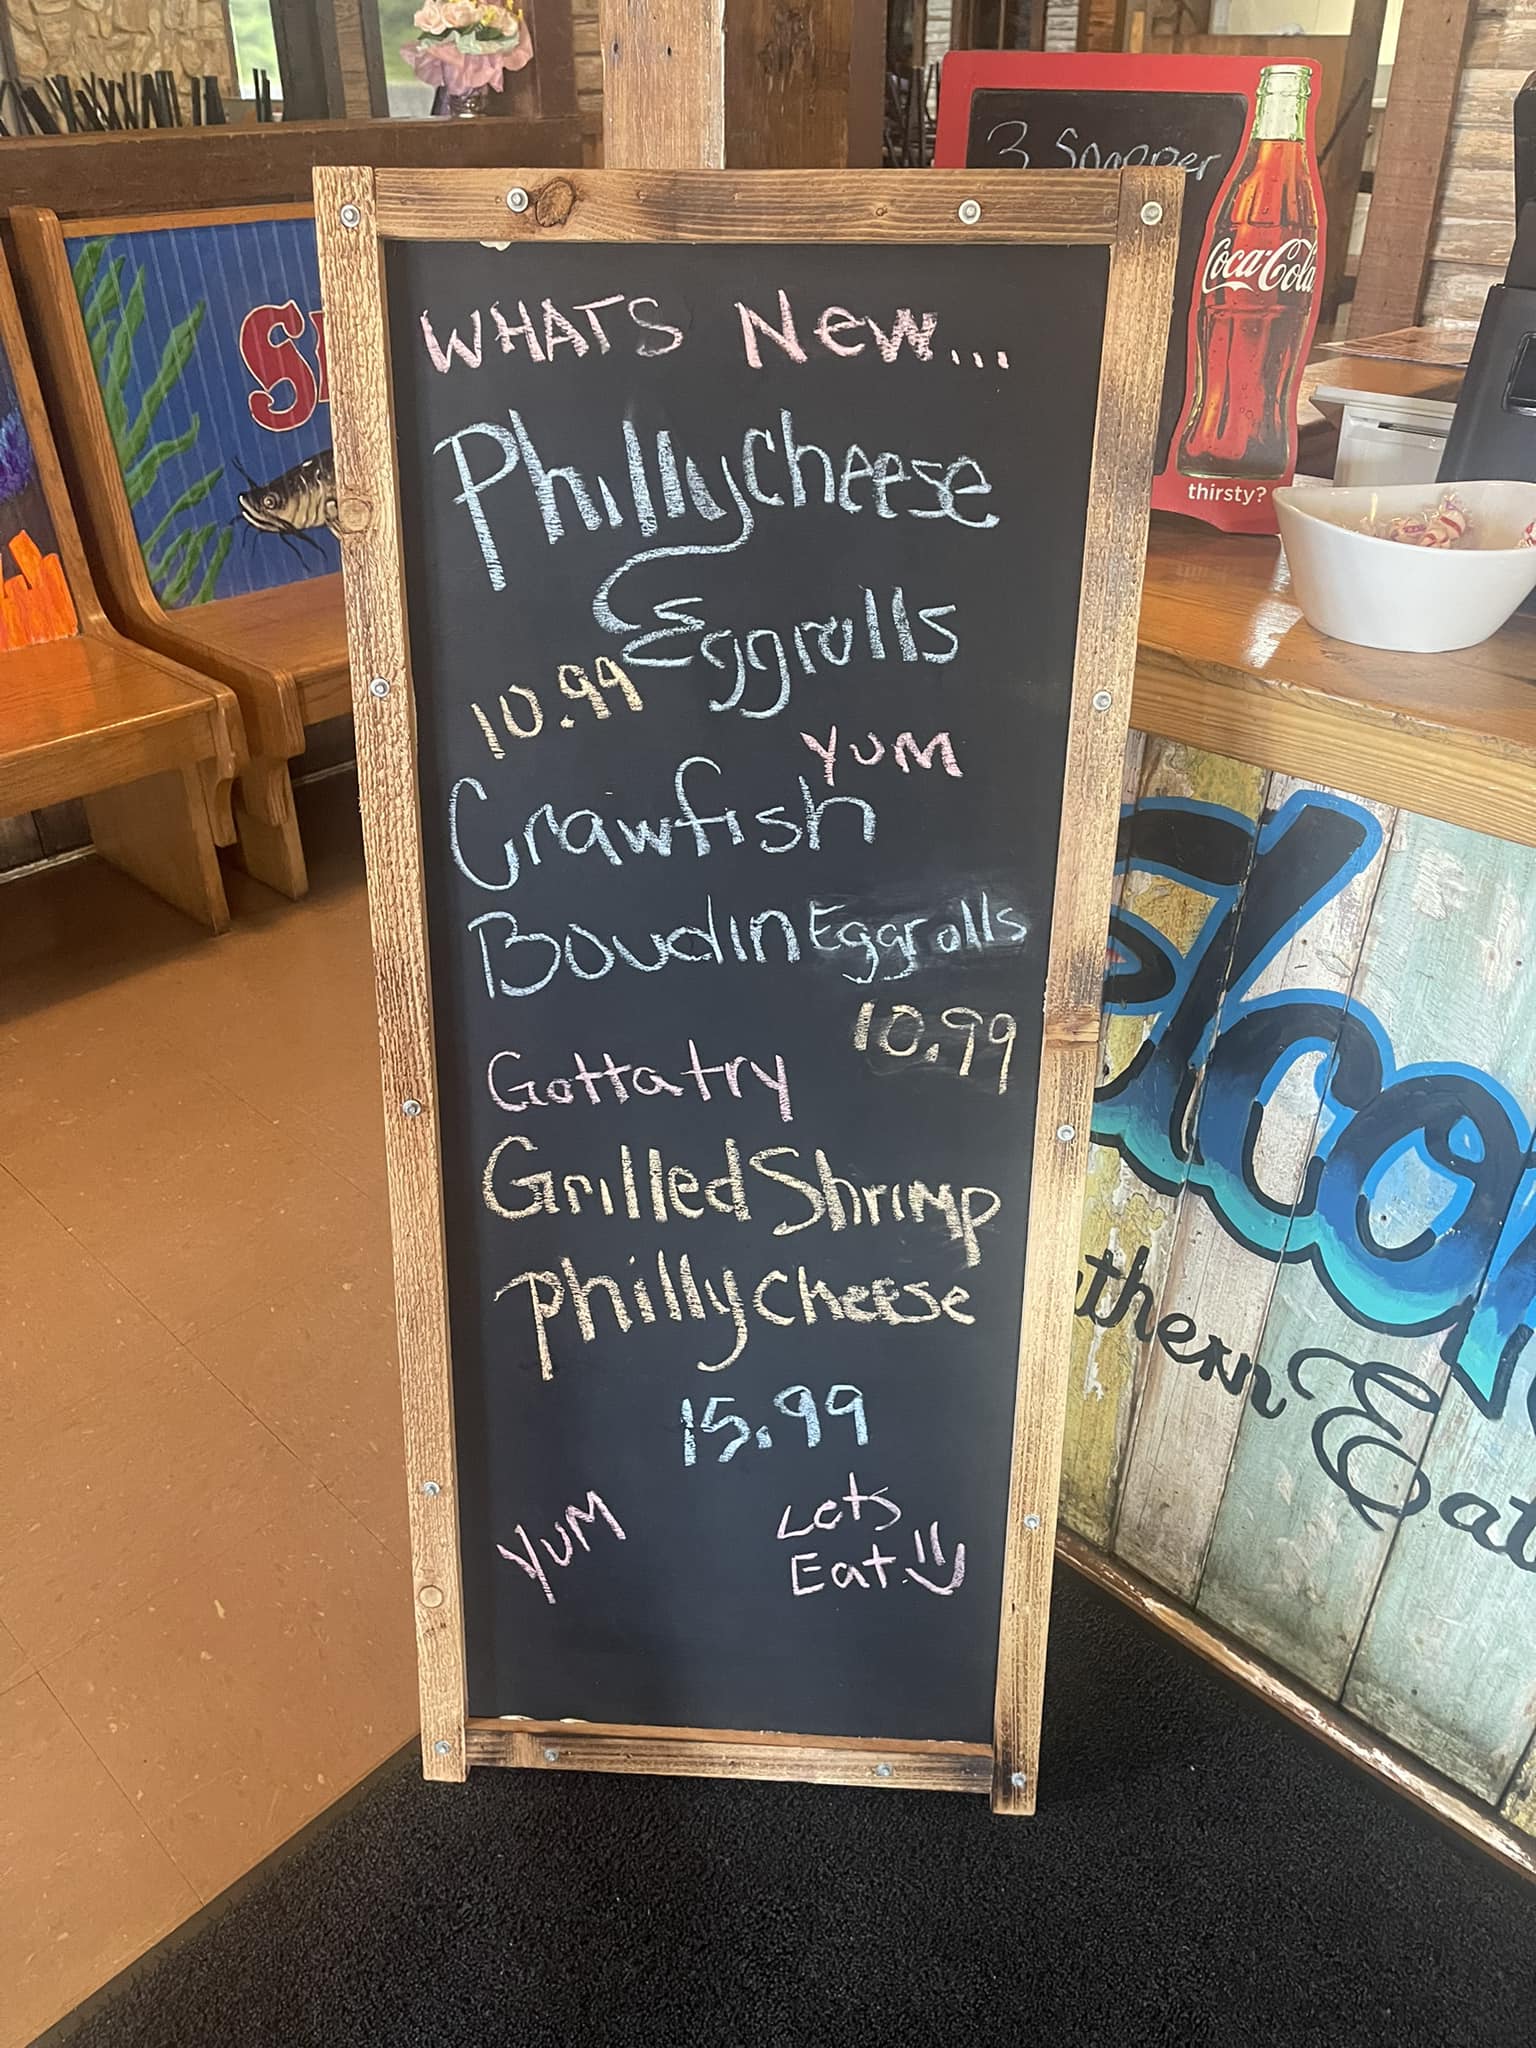 3 Snapper
Coca-Cola
thirsty?
WHATS New...
Philly cheese
Eggrolls
10.99
YUM
Crawfish
Boudin Eggrolls
10.99
Gotta try
Grilled Shrimp
Philly cheese
15.99
YUM
Lets
Eat